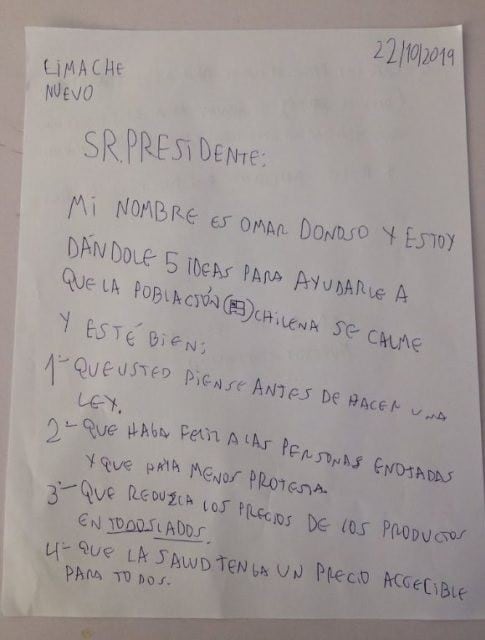 LIMACHE
NUEVO
22/10/2019
SR. PRESIDENTE:
MI NOMBRE ES OMAR DONOSO Y ESTOY
DÁNDOLE 5 IDEAS PARA AYUDARLE A
QUE LA POBLACIÓN () CHILENA SE CALME
Y ESTÉ BIEN:
1- QUE USTED PIENSE ANTES DE HACER UNA
LEY.
2- QUE HAGA FELIZ A LAS PERSONAS ENOJADAS
Y QUE HAYA MENOS PROTESTA.
3- QUE REDUZCA LOS PRECIOS DE LOS PRODUCTOS
EN TODOS LADOS.
4- QUE LA SALUD TENGA UN PRECIO ACCECIBLE
PARA TODOS.